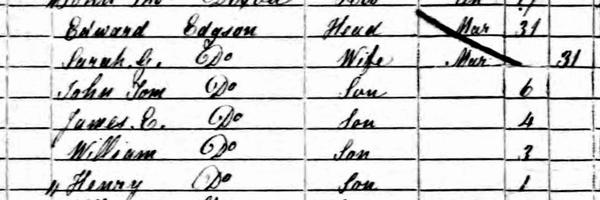 Edward Edgson Head Mar 31
Sarah G. Do Wife Mar 31
John Tom Do Son 6
James E. Do Son 4
William Do Son 3
" Henry Do Son 1